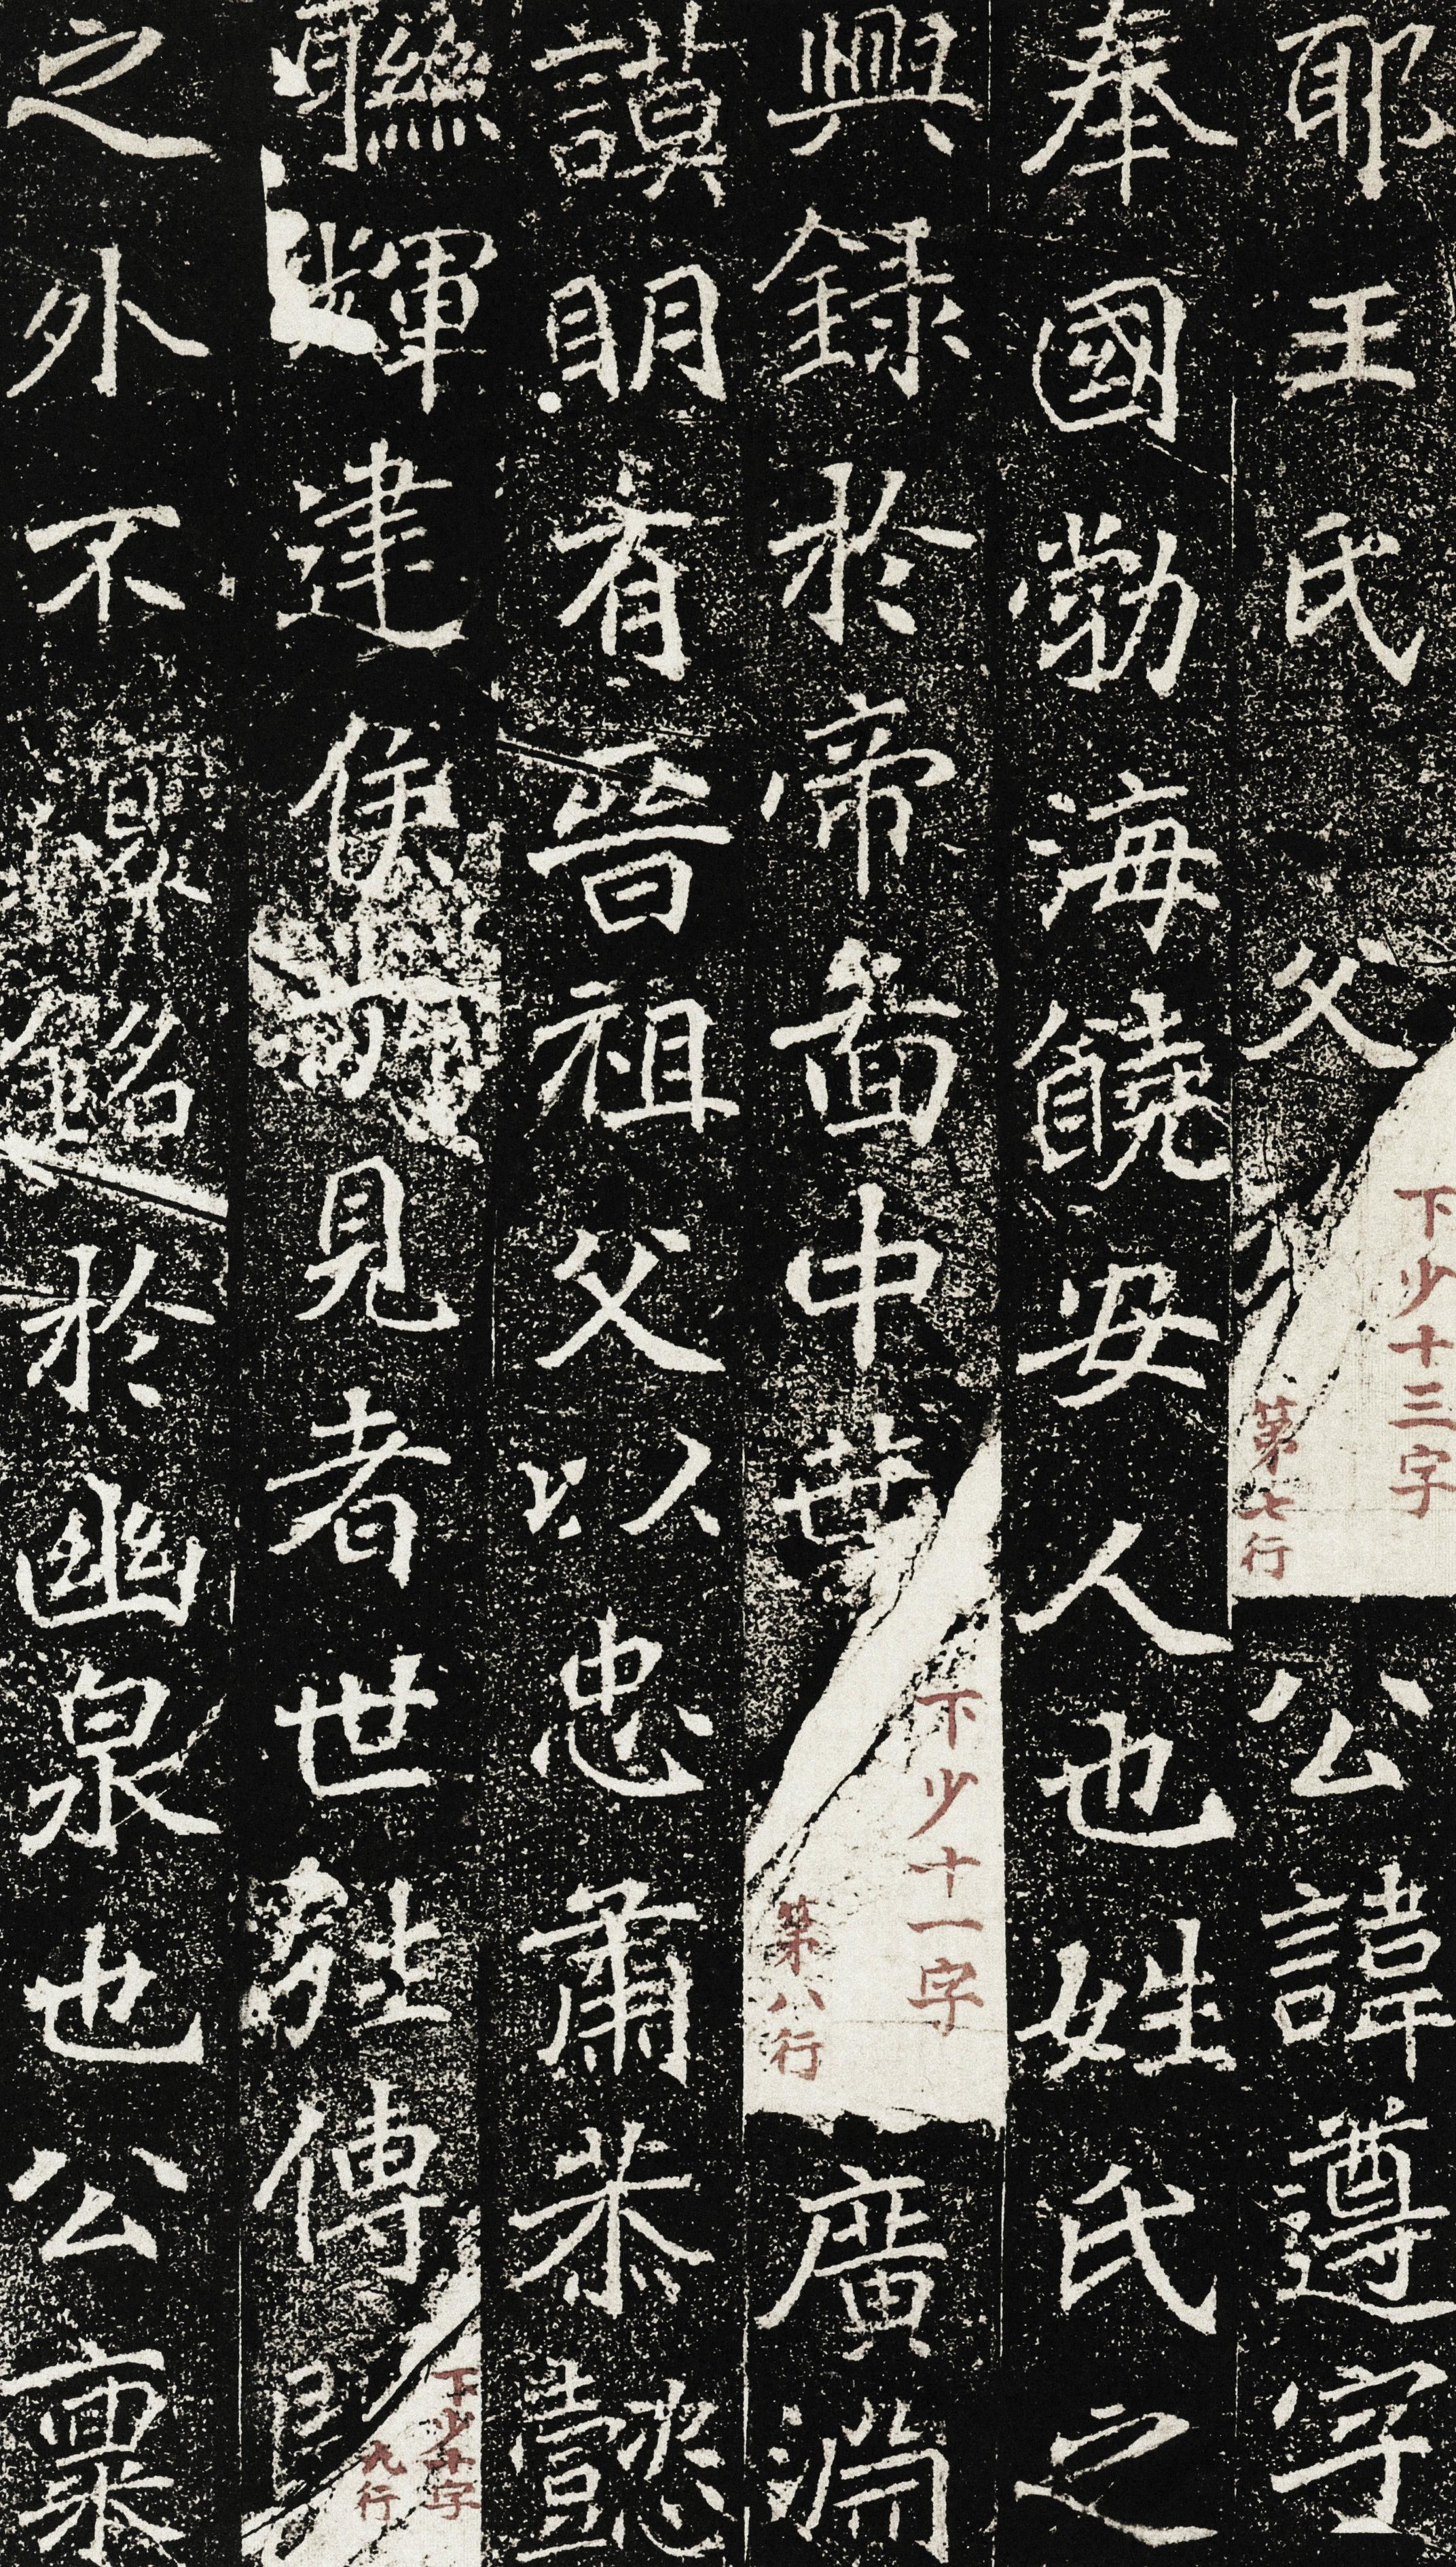 耶王氏父
下少十三字
第七行
公諱遵字
奉國勃海饒安人也姓氏之
興録於帝啚中華
下少十一字
第八行
廣淵
謨明有晉祖父以忠肅恭懿
聯輝建侯見者世傳
下少十字
九行
之外不銘於幽泉也公稟